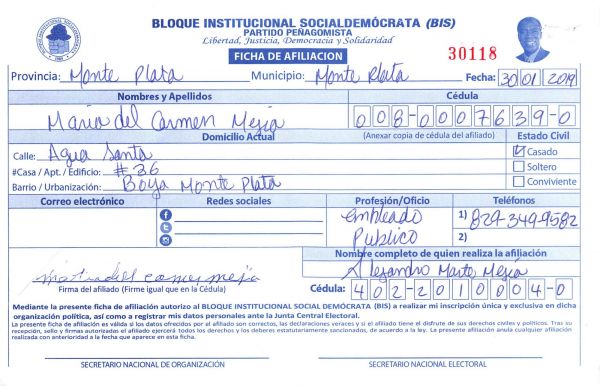 BLOQUE INSTITUCIONAL SOCIALDEMÓCRATA (BIS)
PARTIDO PEÑAGOMISTA
Libertad, Justicia, Democracia y Solidaridad
FICHA DE AFILIACION
30118
Provincia: Monte Plata Municipio: Monte Plata Fecha: 30 01 2019
Nombres y Apellidos Cédula
Maria del Carmen Mejia 008-0007639-0
Domicilio Actual (Anexar copia de cédula del afiliado) Estado Civil
Calle: Agua Santa Casado
#Casa / Apt. / Edificio: #36 Soltero
Barrio / Urbanización: Boya Monte Plata Conviviente
Correo electrónico Redes sociales Profesión/Oficio Teléfonos
empleado 1) 829-349-9582
Publico 2)
Nombre completo de quien realiza la afiliación
Alejandro Marte Mejia
Firma del afiliado (Firme igual que en la Cédula) Cédula: 402-2010004-0
Mediante la presente ficha de afiliación autorizo al BLOQUE INSTITUCIONAL SOCIAL DEMÓCRATA (BIS) a realizar mi inscripción única y exclusiva en dicha
organización política, así como a registrar mis datos personales ante la Junta Central Electoral.
La presente ficha de afiliación es válida si los datos ofrecidos por el afiliado son correctos, las declaraciones veraces y si el afiliado tiene el disfrute de sus derechos civiles y políticos. Tras su
recepción, selle y firmas autorizadas el afiliado ejercerá todos los derechos y los deberes estatutariamente sancionados, de acuerdo a la ley. La presente afiliación anula cualquier afiliación
realizada con anterioridad a la fecha que aparece en esta ficha.
SECRETARIO NACIONAL DE ORGANIZACIÓN SECRETARIO NACIONAL ELECTORAL